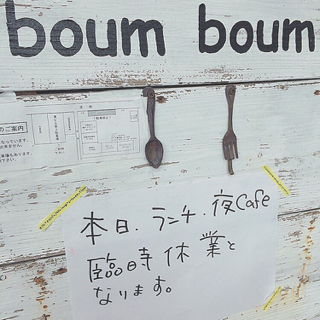 boum boum
のご案内
本日、ランチ、夜Cafe
臨時休業と
なります。